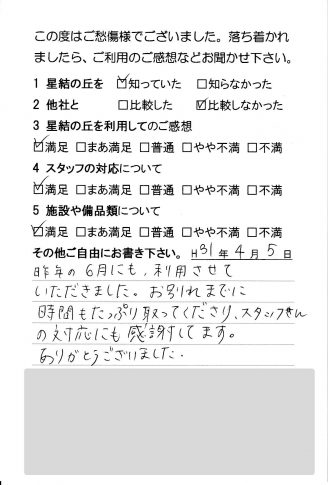 この度はご愁傷様でございました。落ち着かれ
ましたら、ご利用のご感想などお聞かせ下さい。
1 星結の丘を ☑知っていた □知らなかった
2 他社と □比較した ☑比較しなかった
3 星結の丘を利用してのご感想
☑満足 □まあ満足 □普通 □やや不満 □不満
4 スタッフの対応について
☑満足 □まあ満足 □普通 □やや不満 □不満
5 施設や備品類について
☑満足 □まあ満足 □普通 □やや不満 □不満
その他ご自由にお書き下さい。H31年4月5日
昨年の6月にも、利用させて
いただきました。お別れまでに
時間もたっぷり取ってくださり、スタッフさん
の対応にも感謝してます。
ありがとうございました。